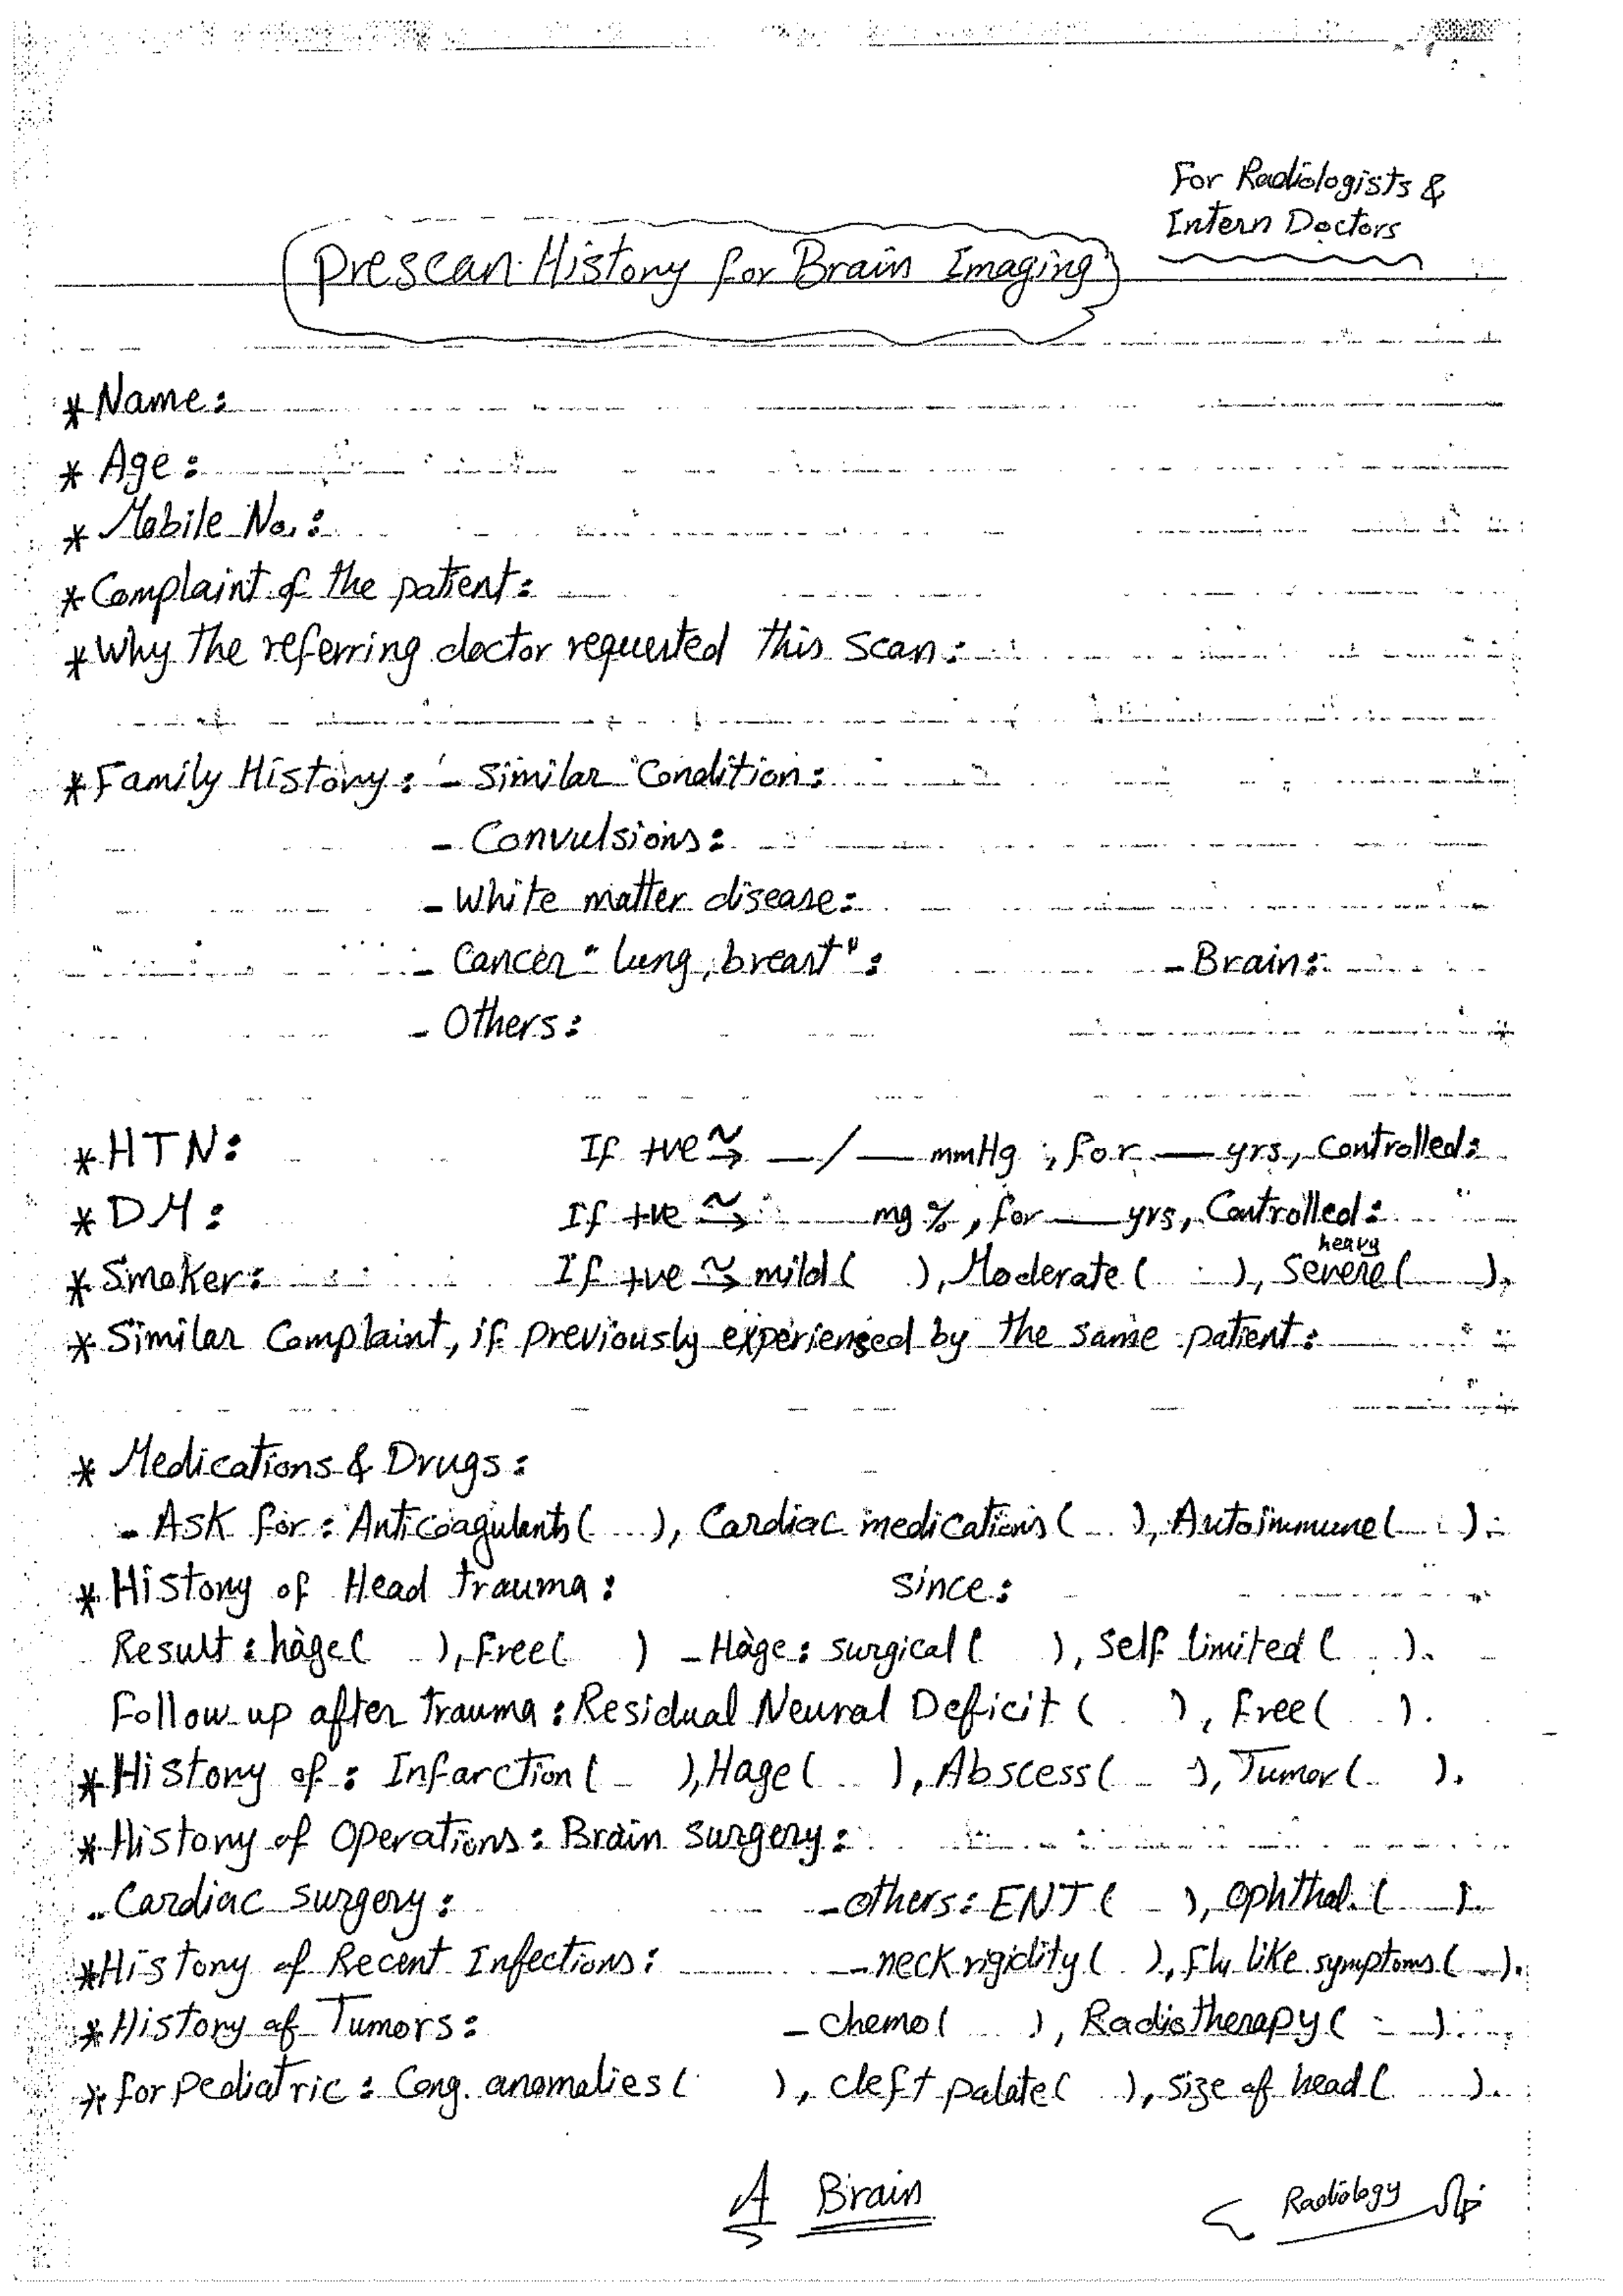 For Radiologists &
Intern Doctors
Prescan History for Brain Imaging
* Name:
* Age:
* Mobile No.:
* Complaint of the patient:
* Why the referring doctor requested this scan:
* Family History: - Similar Condition:
- Convulsions:
- White matter disease:
- Cancer "lung, breast": - Brain:
- Others:
* HTN: If +ve ~> __/__ mmHg, for __ yrs, Controlled:
* DM: If +ve ~> __ mg %, for __ yrs, Controlled:
heavy
* Smoker: If +ve ~> mild ( ), Moderate ( ), Severe ( ).
* Similar Complaint, if previously experienced by the same patient:
* Medications & Drugs:
- Ask for: Anticoagulants ( ), Cardiac medications ( ), Autoimmune ( ).
* History of Head trauma: since:
Result: hage ( ), Free ( ) - Hage: surgical ( ), Self limited ( ).
Follow up after trauma: Residual Neural Deficit ( ), free ( ).
* History of: Infarction ( ), Hage ( ), Abscess ( ), Tumor ( ).
* History of Operations: Brain surgery:
- Cardiac surgery: - others: ENT ( ), Ophthal. ( ).
* History of Recent Infections: - neck rigidity ( ), flu like symptoms ( ).
* History of Tumors: - chemo ( ), Radiotherapy ( ).
* for Pediatric: Cong. anomalies ( ), cleft palate ( ), size of head ( ).
A Brain
Radiology